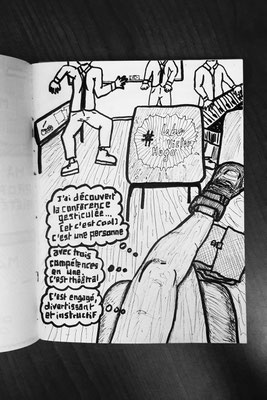 #
J'ai découvert
la conférence
gesticulée...
(et c'est cool)
C'est une personne
avec trois
compétences
en une.
C'est théâtral
C'est engagé,
divertissant
et instructif